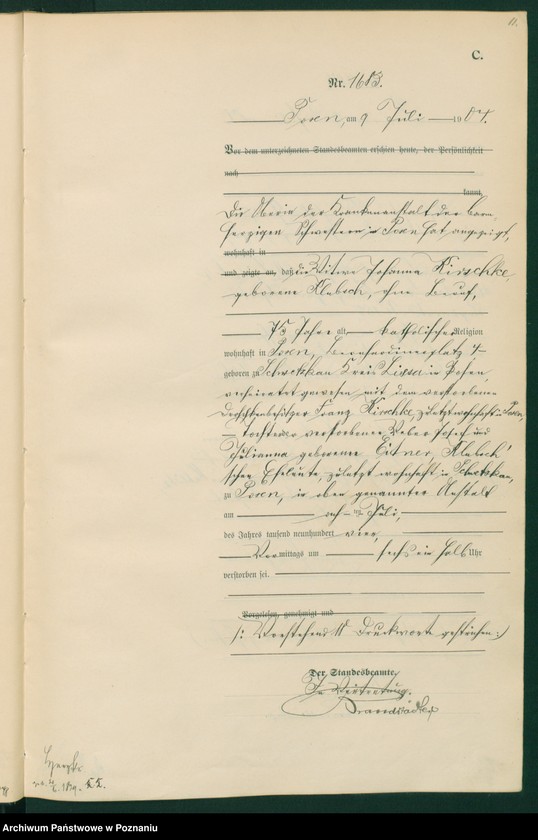 11.
C.
Nr. 1683.
Posen, am 9 Juli 1904.
Vor dem unterzeichneten Standesbeamten erschien heute, der Persönlichkeit
nach
kannt,
Die Oberin der Krankenanstalt der barm
herzigen Schwestern in Posen hat angezeigt,
wohnhaft in
und zeigte an, daß die Witwe Johanna Kirschke,
geborene Klabsch, ohne Beruf,
73 Jahre alt, katholischer Religion
wohnhaft in Posen, Bernhardinerplatz 4
geboren zu Schwetzkau Kreis Lissa in Posen,
verheiratet gewesen mit dem verstorbenen
Franz Kirschke, zuletzt wohnhaft in Posen,
Tochter verstorbener Weber Josef und
Julianna geborene Eitner, Klabsch'
schen Eheleute, zuletzt wohnhaft in Schwetzkau,
zu Posen, in oben genannter Anstalt
am acht ten Juli,
des Jahres tausend neunhundert vier,
Vormittags um sechs ein halb Uhr
verstorben sei.
Vorgelesen, genehmigt und
/: Vorstehend 11 Druckworte gestrichen :/
Der Standesbeamte.
In Vertretung.
Archiwum Państwowe w Poznaniu